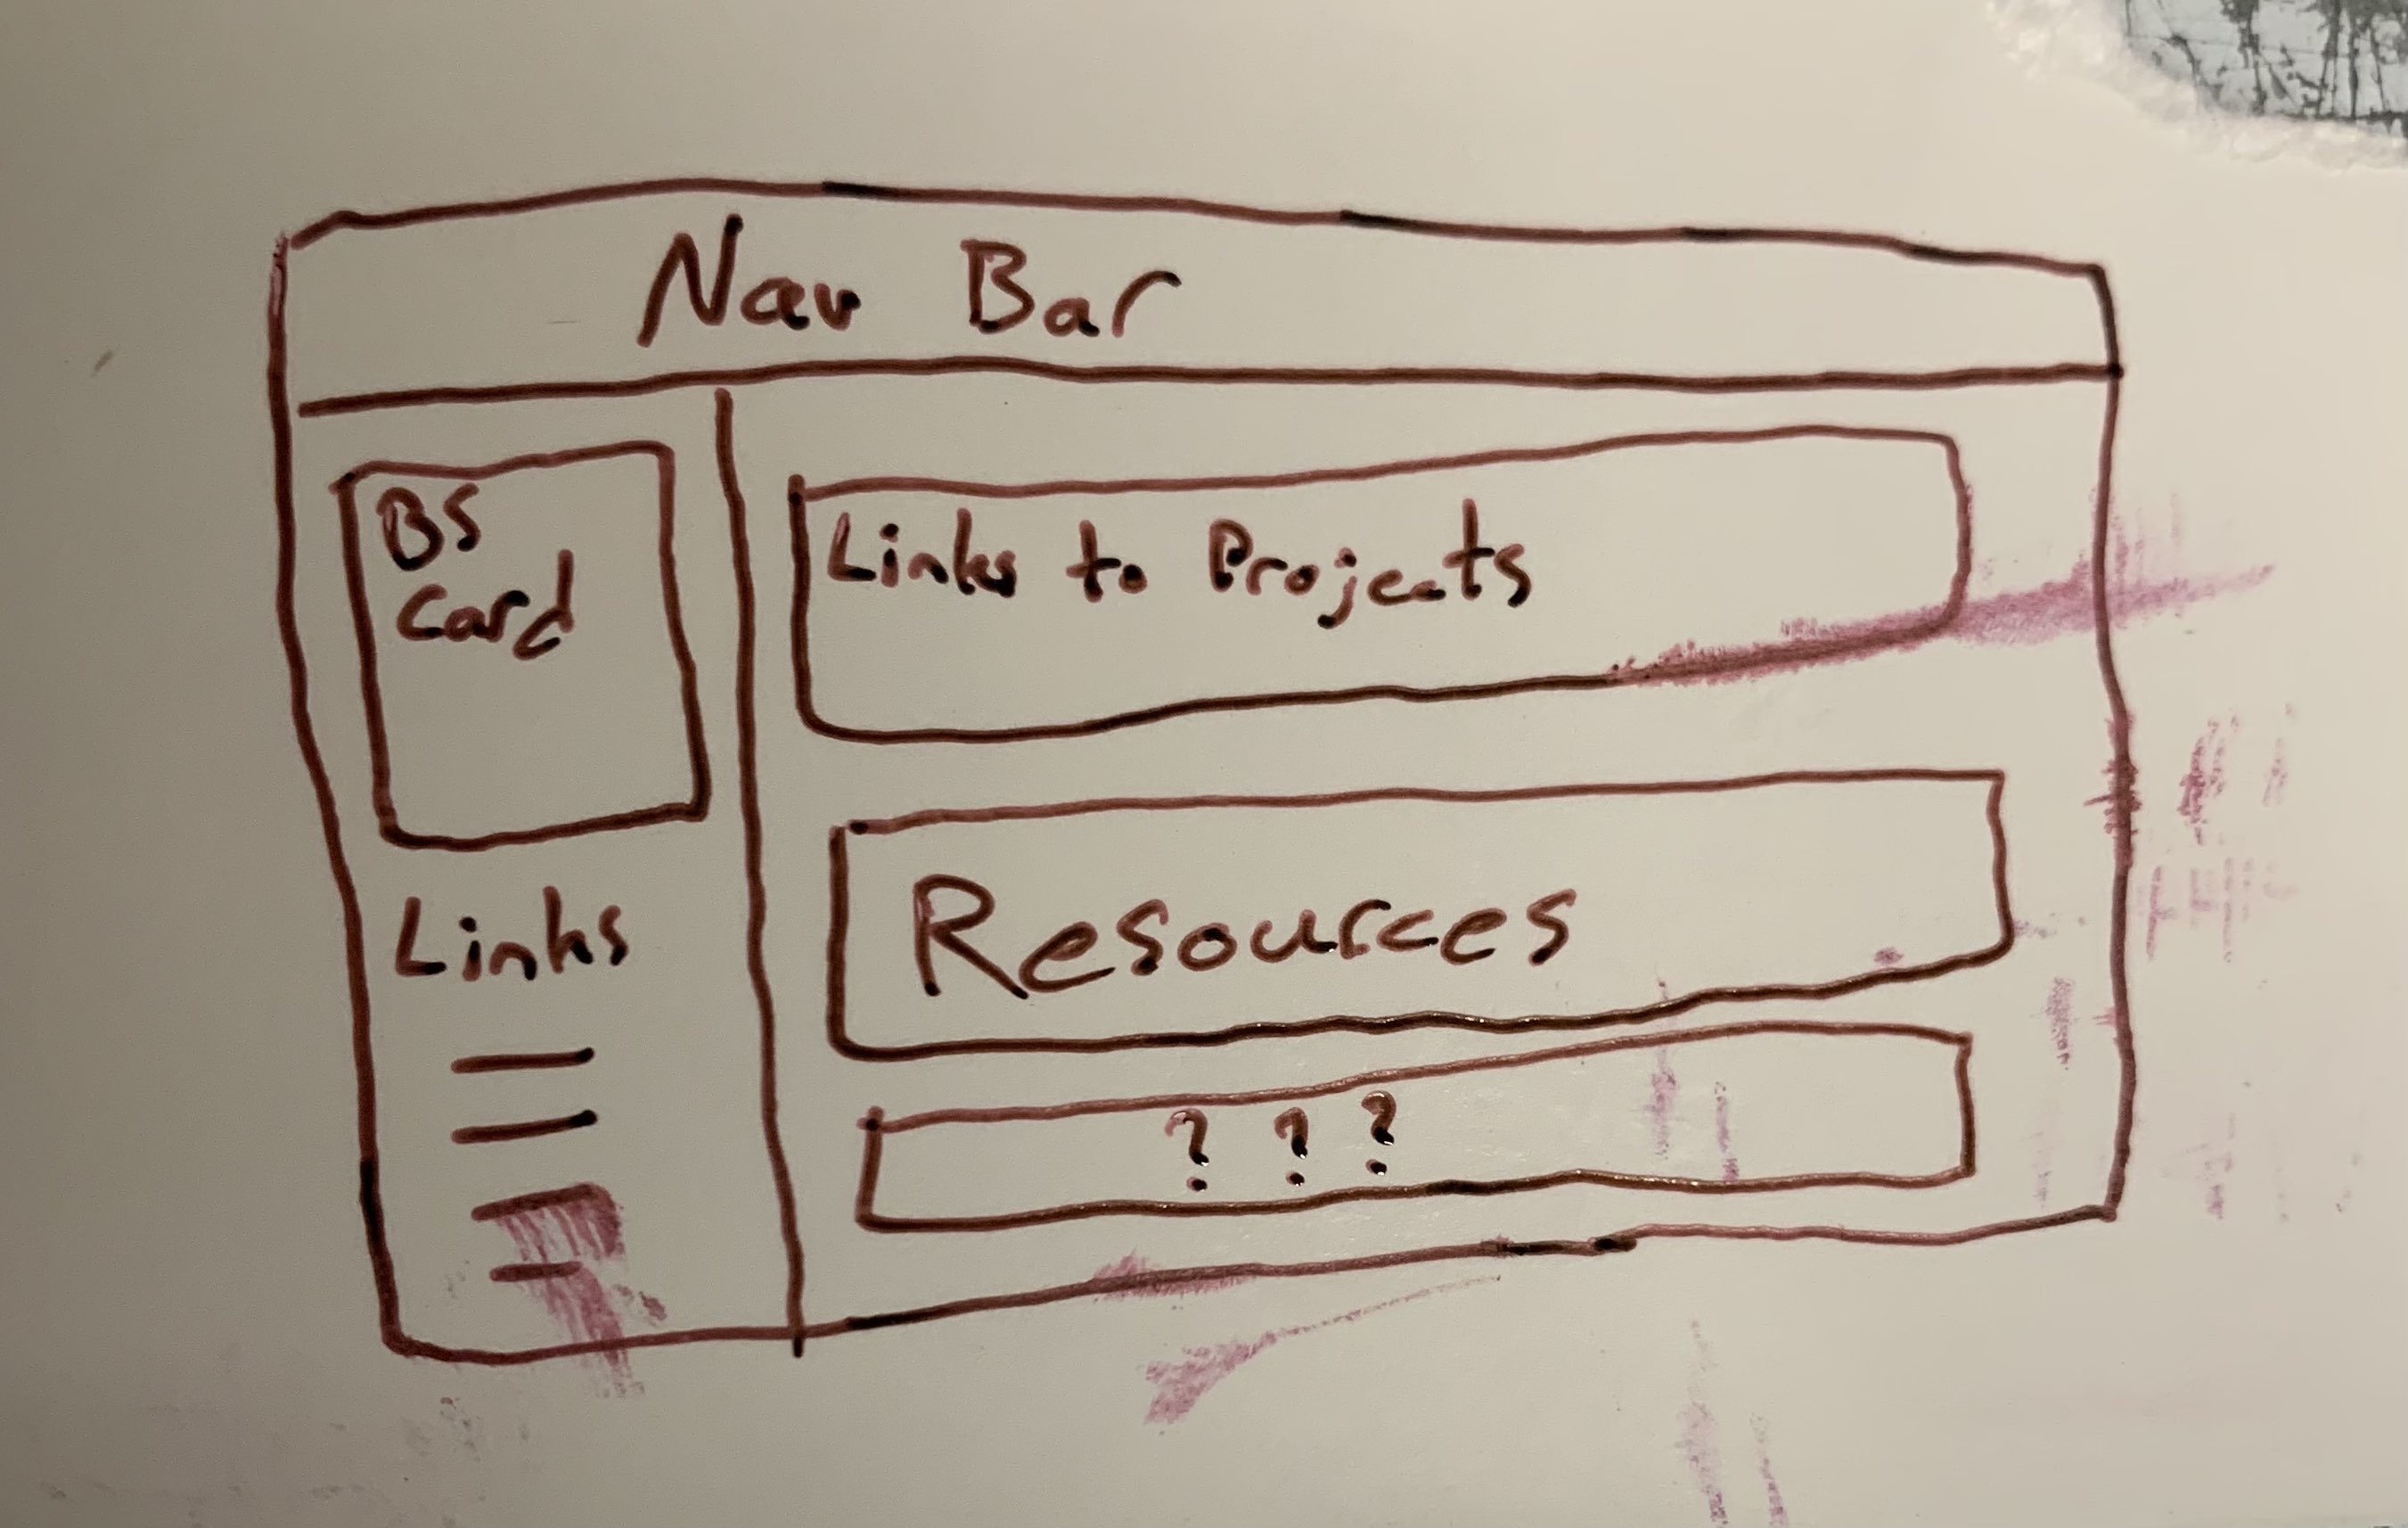 Nav Bar
BS
Card
Links
Links to Projects
Resources
? ? ?